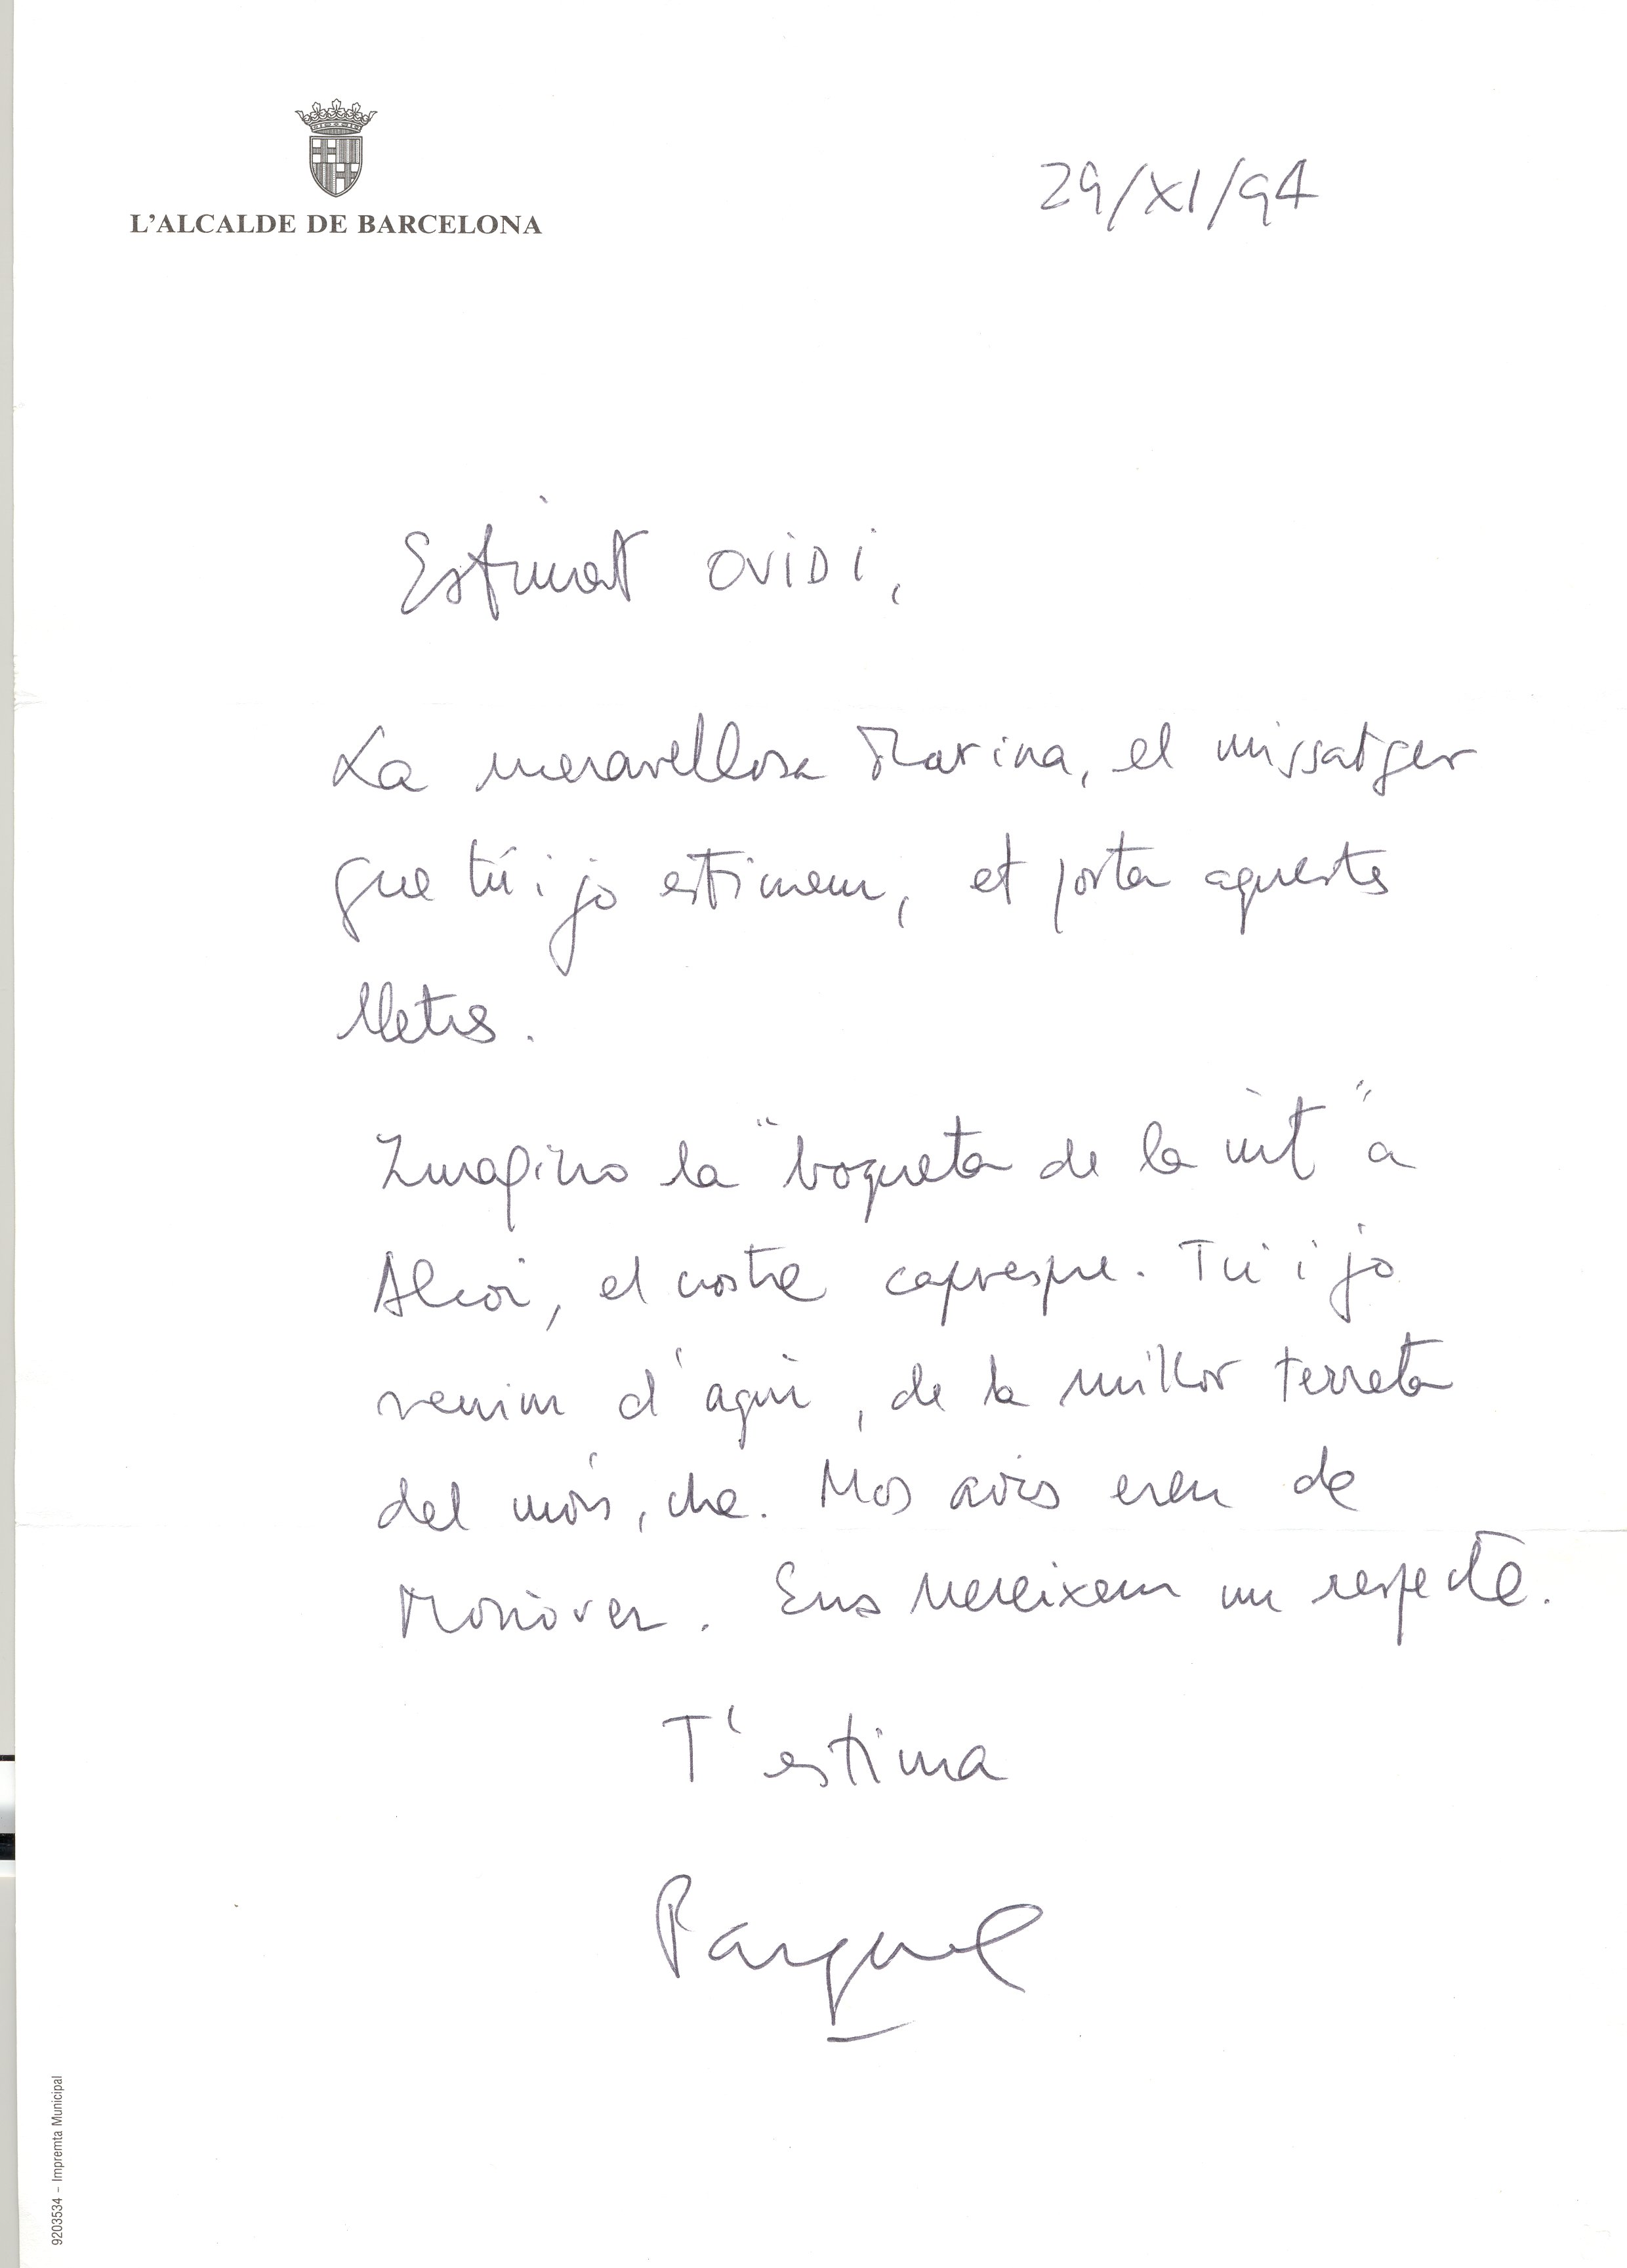 L'ALCALDE DE BARCELONA
29/XI/94
Estimat OVIDI,
La meravellosa Marina, el missatger
que tú i jo estimem, et porta aquestes
lletres.
Imagino la "boqueta de la nit" a
Alcoi, el nostre capvespre. Tu i jo
venim d'aquí, de la millor terreta
del món, che. Mos avis eren de
Monòver. Ens mereixem un respecte.
T'estima
Pasqual
9203534 - Impremta Municipal